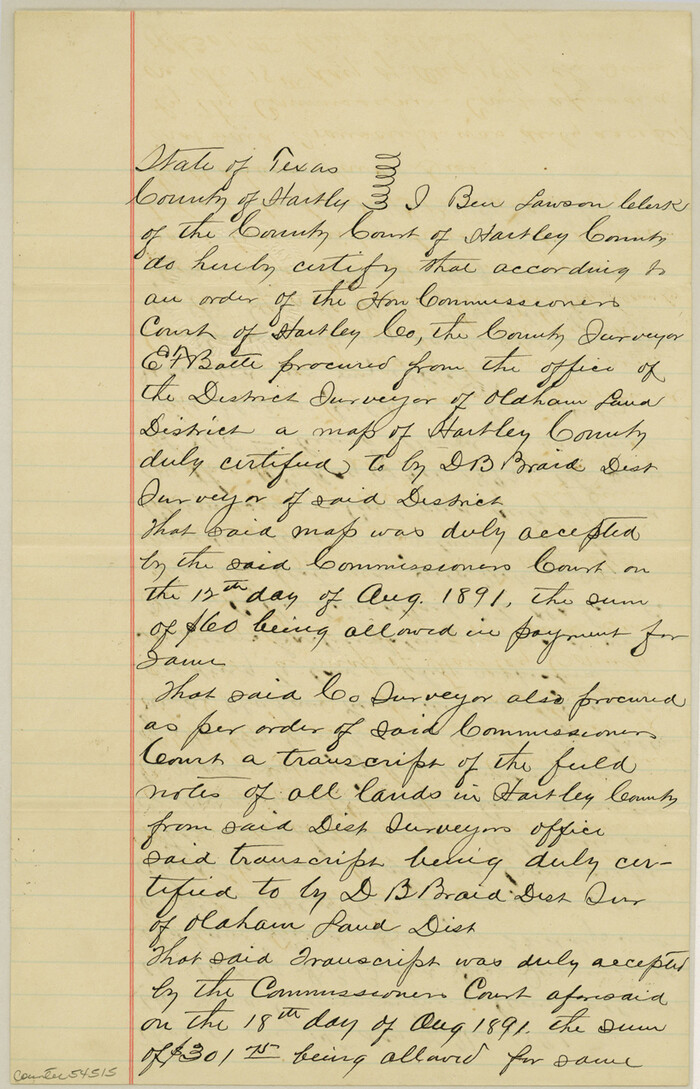 State of Texas
County of Hartley I Ben Lawson Clerk
of the County Court of Hartley County
do hereby certify that according to
an order of the Hon Commissioners
Court of Hartley Co, the County Surveyor
Batte procured from the office of
the District Surveyor of Oldham Land
District a map of Hartley County
duly certified to by D B Braid Dist
Surveyor of said District
That said map was duly accepted
by the said Commissioners Court on
the 12th day of Aug. 1891, the sum
of $60 being allowed in payment for
same
That said Co Surveyor also procured
as per order of said Commissioners
Court a transcript of the field
notes of all lands in Hartley County
from said Dist Surveyors office
said transcript being duly cer-
tified to by D B Braid Dist Sur
of Oldham Land Dist
That said Transcript was duly accepted
by the Commissioners Court aforesaid
on the 18th day of Aug 1891. the sum
of $301 75 being allowed for same
Counter 54515